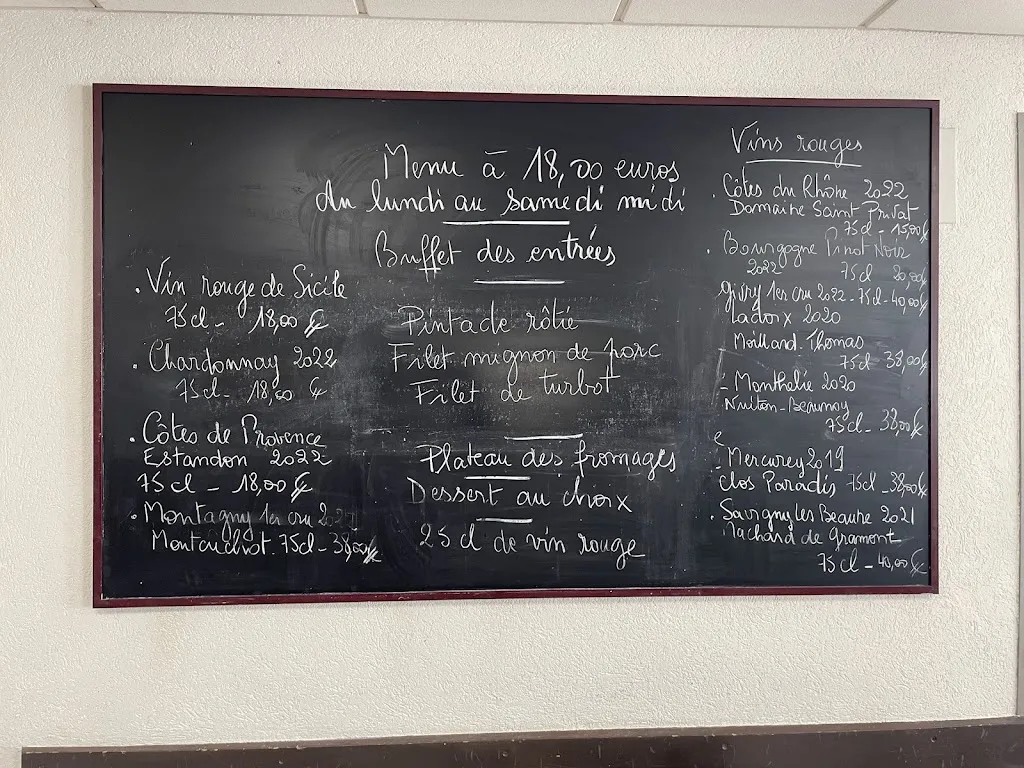 Menu à 18,00 euros
du lundi au samedi midi
Buffet des entrées
Pintade rôtie
Filet mignon de porc
Filet de turbot
Plateau des fromages
Dessert au choix
25 cl de vin rouge
. Vin rouge de Sicile
75 cl - 18,00 €
. Chardonnay 2022
75 cl - 18,00 €
. Côtes de Provence
Estandon 2022
75 cl - 18,00 €
. Montagny 1er cru
Montcuchot. 75cl - 38,00€
Vins rouges
. Côtes du Rhône 2022
Domaine Saint-Privat
75 cl - 15,00€
. Bourgogne Pinot Noir
2022 75 cl 20,00€
Givry 1er cru 2022 - 75cl - 40,00€
Ladoix 2020
Moillard. Thomas
75cl 38,00€
- Monthelie 2020
Nuiton-Beaunoy
75cl - 38,00€
e
- Mercurey 2019
Clos Paradis 75cl - 38,00€
. Savigny les Beaune 2021
Machard de Gramont
75 cl - 40,00 €